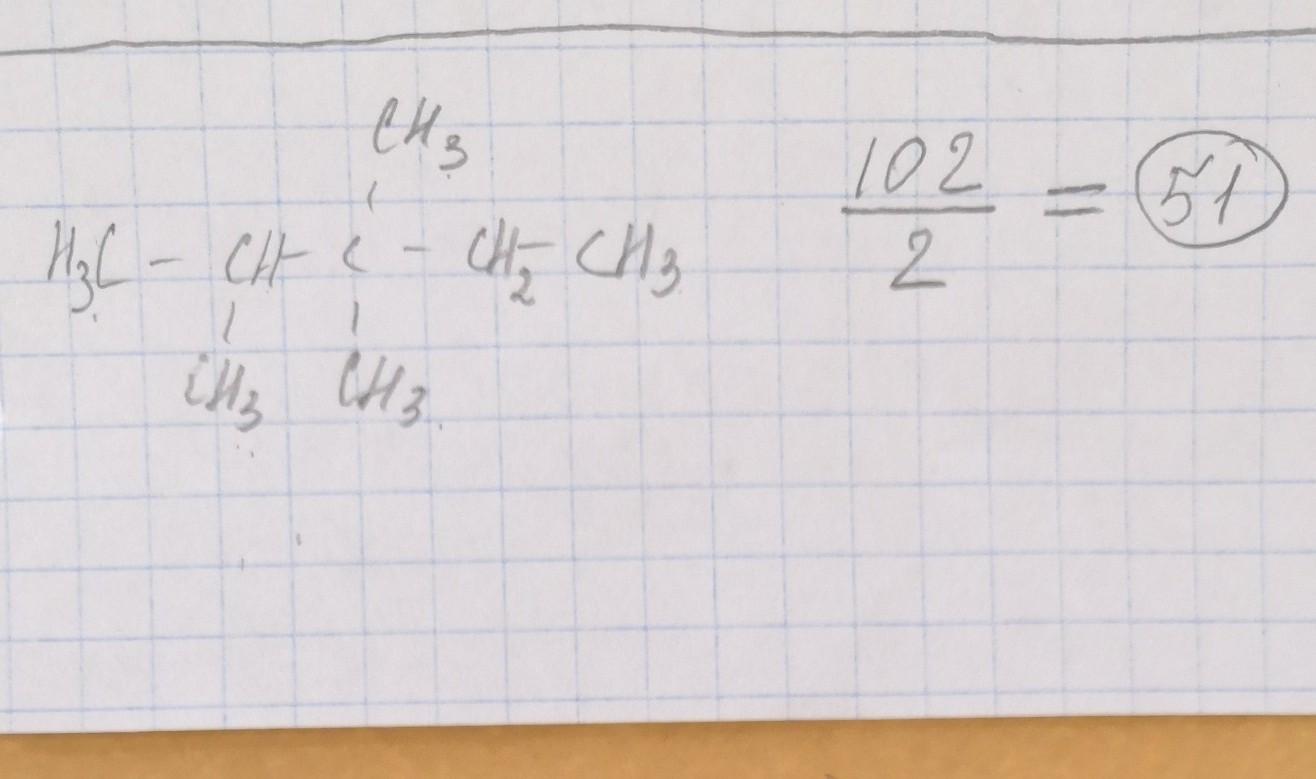 CH3
H3C - CH - C - CH2 - CH3
CH3 CH3
102
2
= 51